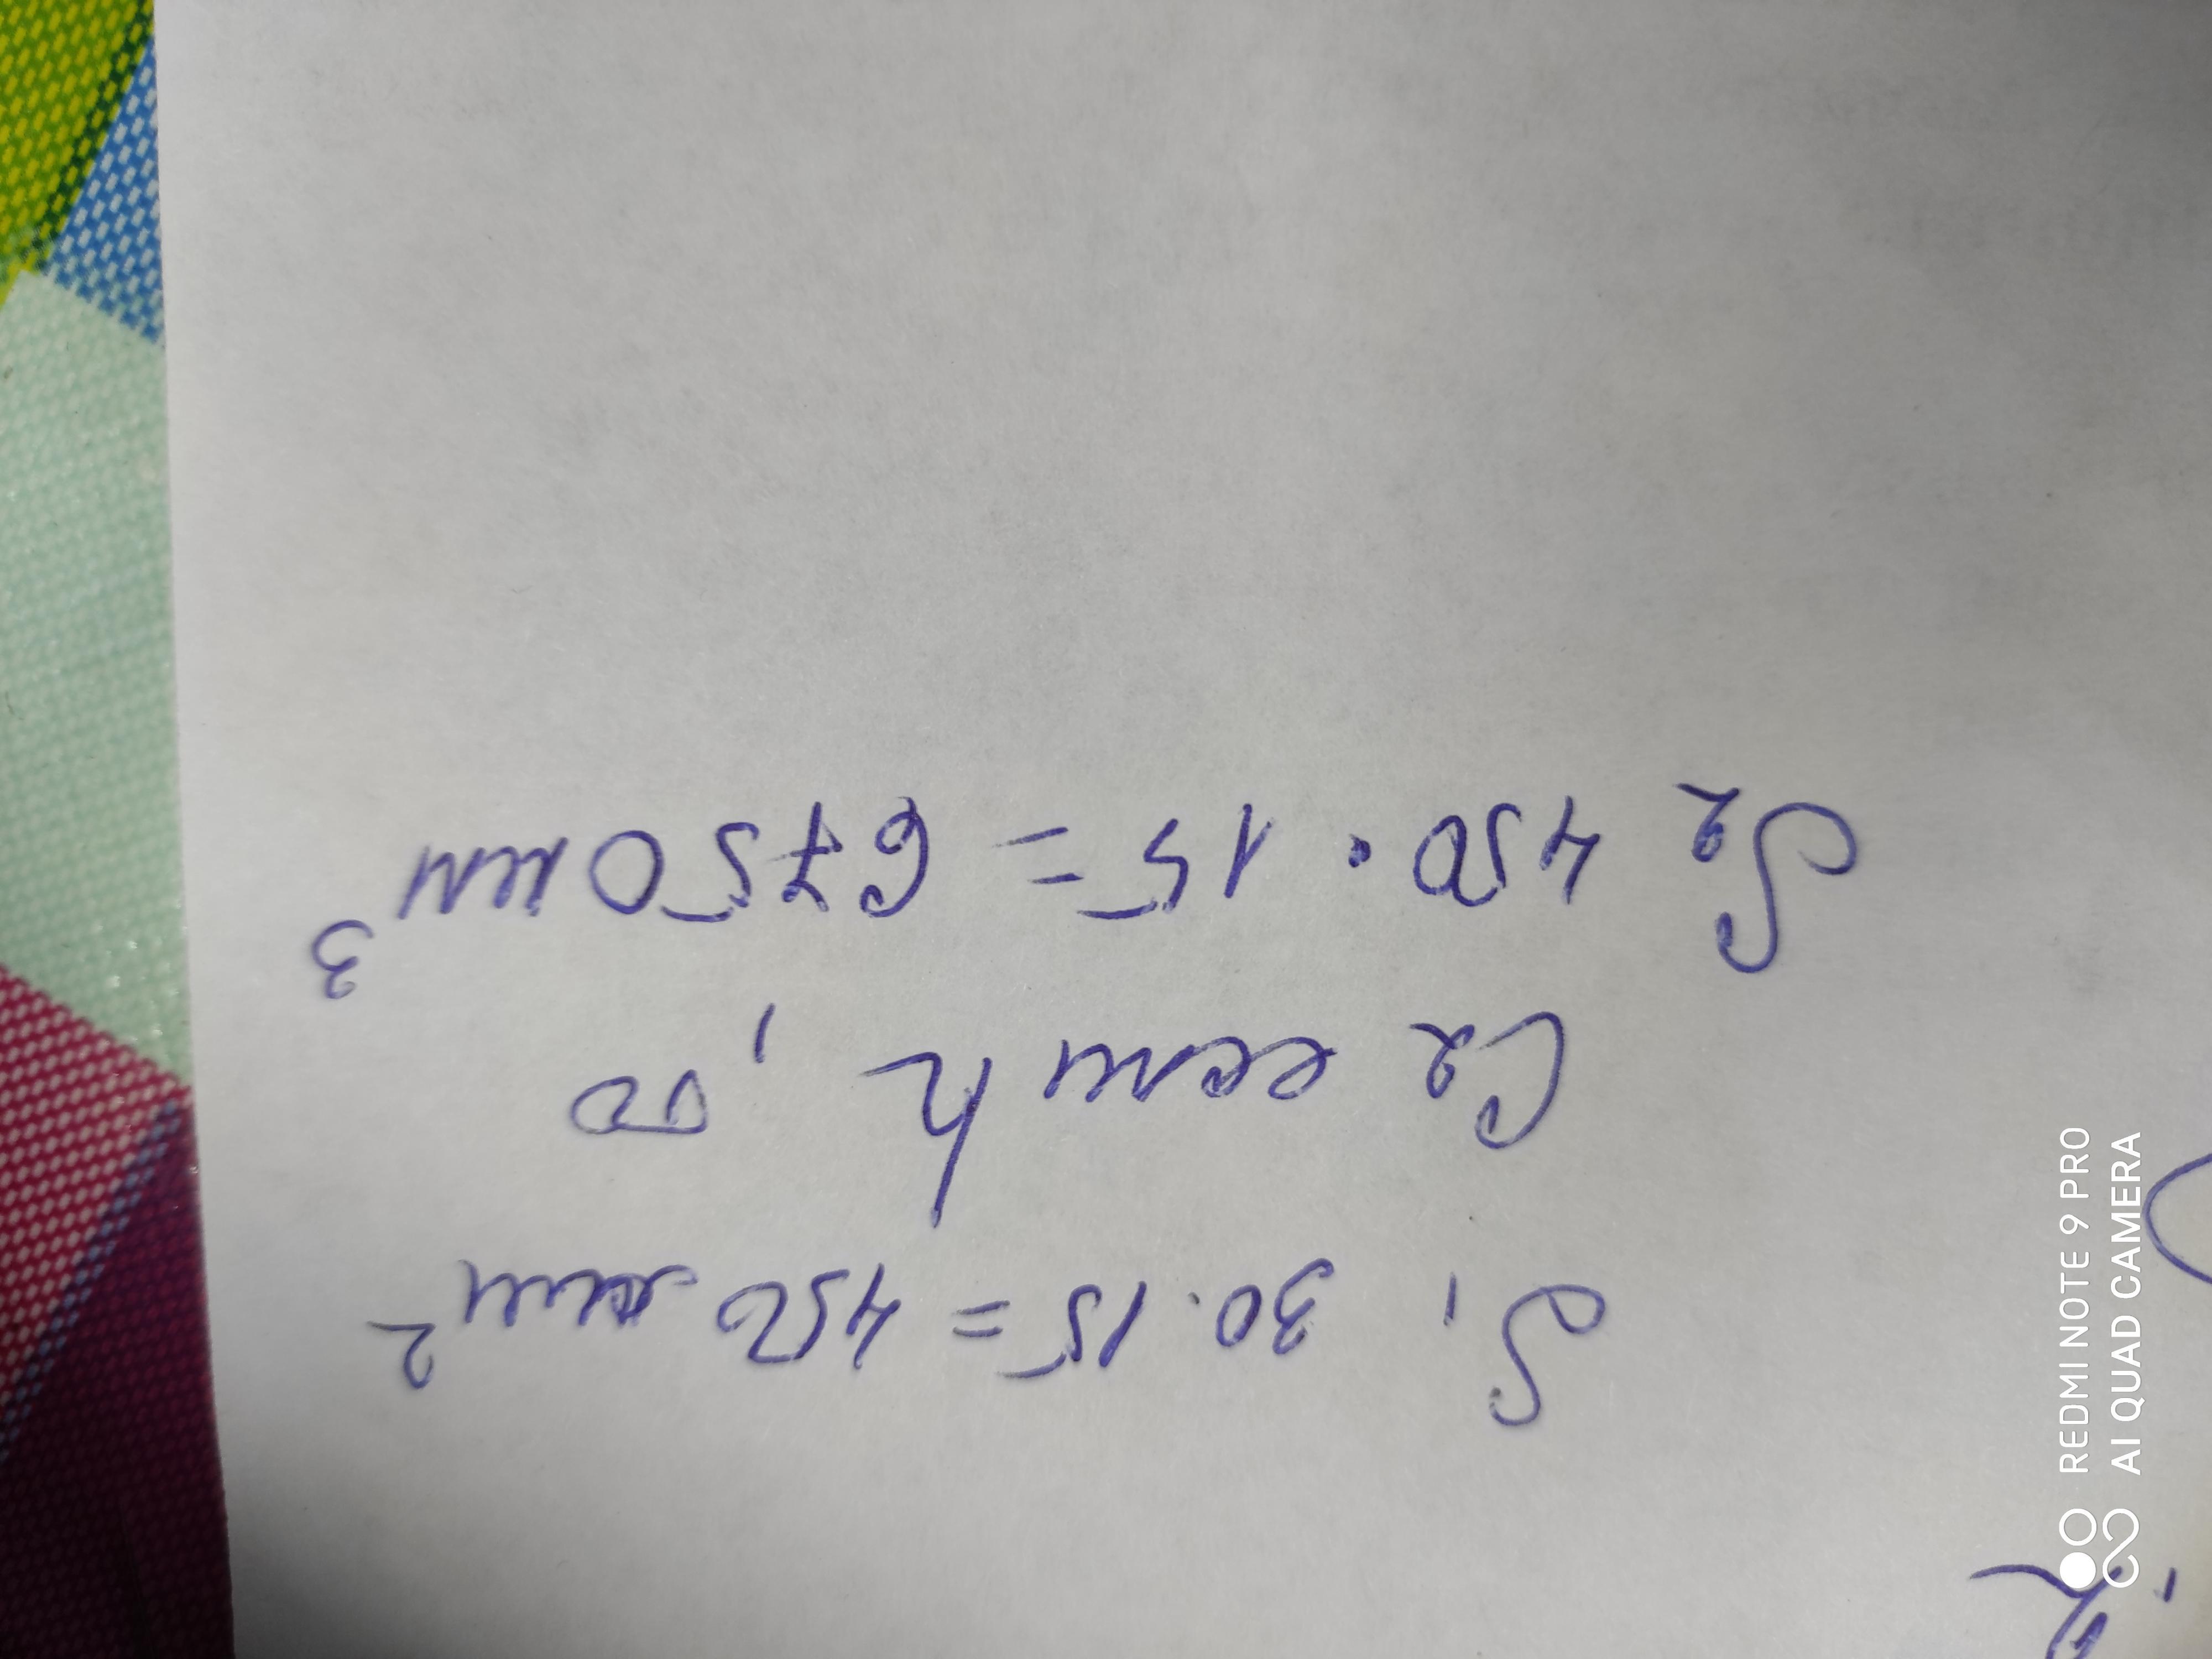 S₁ 30·15 = 450 мм²
С₂ если h, то
S₂ 450 · 15 = 6750 мм³
REDMI NOTE 9 PRO
AI QUAD CAMERA